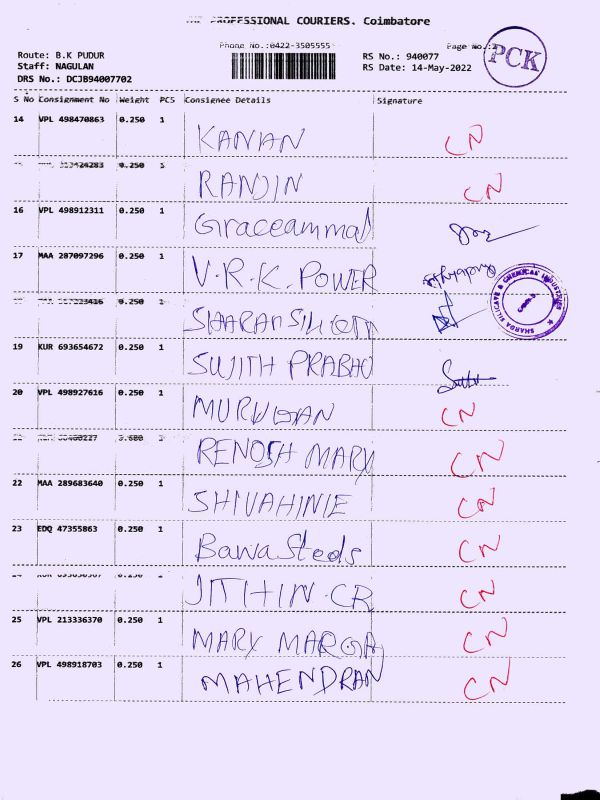 THE PROFESSIONAL COURIERS. Coimbatore
Phone No.:0422-3505555
Page No.:2
Route: B.K PUDUR
Staff: NAGULAN
DRS No.: DCJB94007702
RS No.: 940077
RS Date: 14-May-2022
PCK
S No Consignment No Weight PCS Consignee Details Signature
14 VPL 498470863 0.250 1 KANAN CN
0.250 1 RANJIN CN
16 VPL 498912311 0.250 1 Graceammal
17 MAA 287097296 0.250 1 V.R.K. POWER
0.250 1
SHARDA SILICATE & CHEMICAL INDUSTRIES
19 KUR 693654672 0.250 1 SUJITH PRABHU
20 VPL 498927616 0.250 1 MURUGAN CN
1 RENOSH MARY CN
22 MAA 289683640 0.250 1 SHIVAHINIE CN
23 EDQ 47355863 0.250 1 Bawa Steds CN
1 JITHIN.CR CN
25 VPL 213336370 0.250 1 MARY MARGA CN
26 VPL 498918703 0.250 1 MAHENDRAN CN